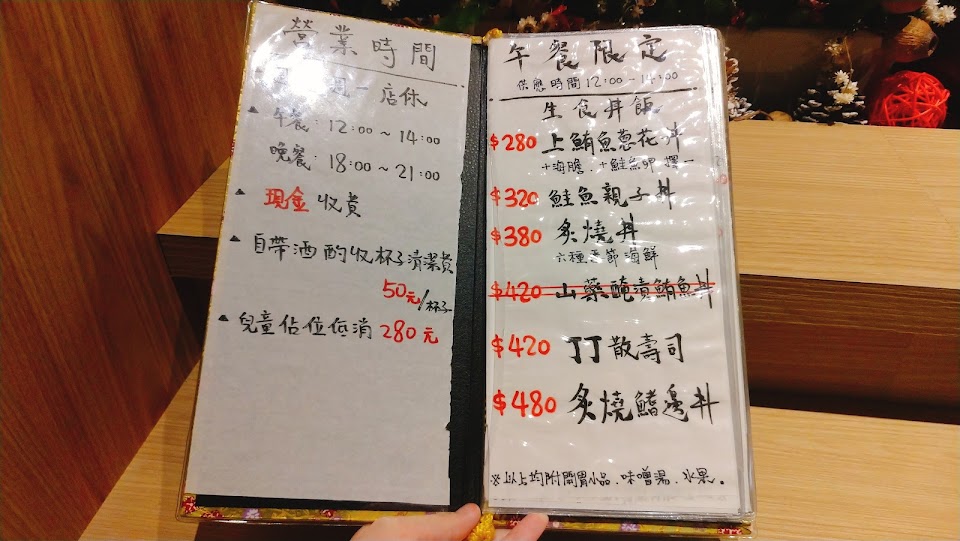 營業時間
週一店休
▲ 午餐：12:00～14:00
晚餐：18:00～21:00
▲ 現金收費
▲ 自帶酒酌收杯子清潔費
50元/杯子
▲ 兒童佔位低消280元
午餐限定
供應時間12:00-14:00
生食丼飯
$280 上鮪魚蔥花丼
+海膽.+鮭魚卵 擇一
$320 鮭魚親子丼
$380 炙燒丼
六種季節海鮮
$420 山藥醃漬鮪魚丼
$420 丁丁散壽司
$480 炙燒鰭邊丼
※以上均附開胃小品.味噌湯.水果。